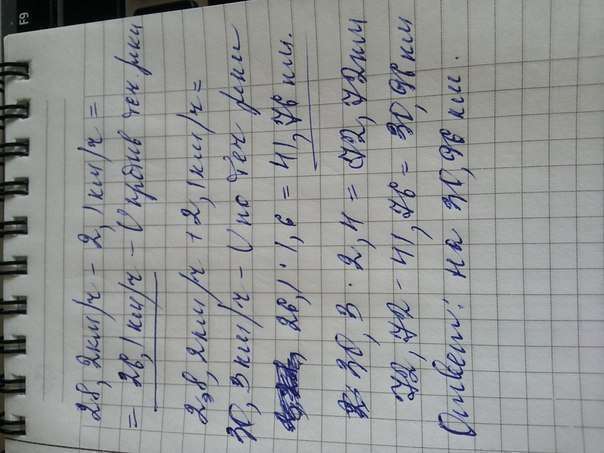 28,2 км/ч - 2,1 км/ч =
= 26,1 км/ч - V против теч. реки
28,2 км/ч + 2,1 км/ч =
30,3 км/ч - V по теч реки
26,1 · 1,6 = 41,76 км.
30,3 · 2,4 = 72,72 км
72,72 - 41,76 = 30,96 км
Ответ: на 30,96 км.
F9